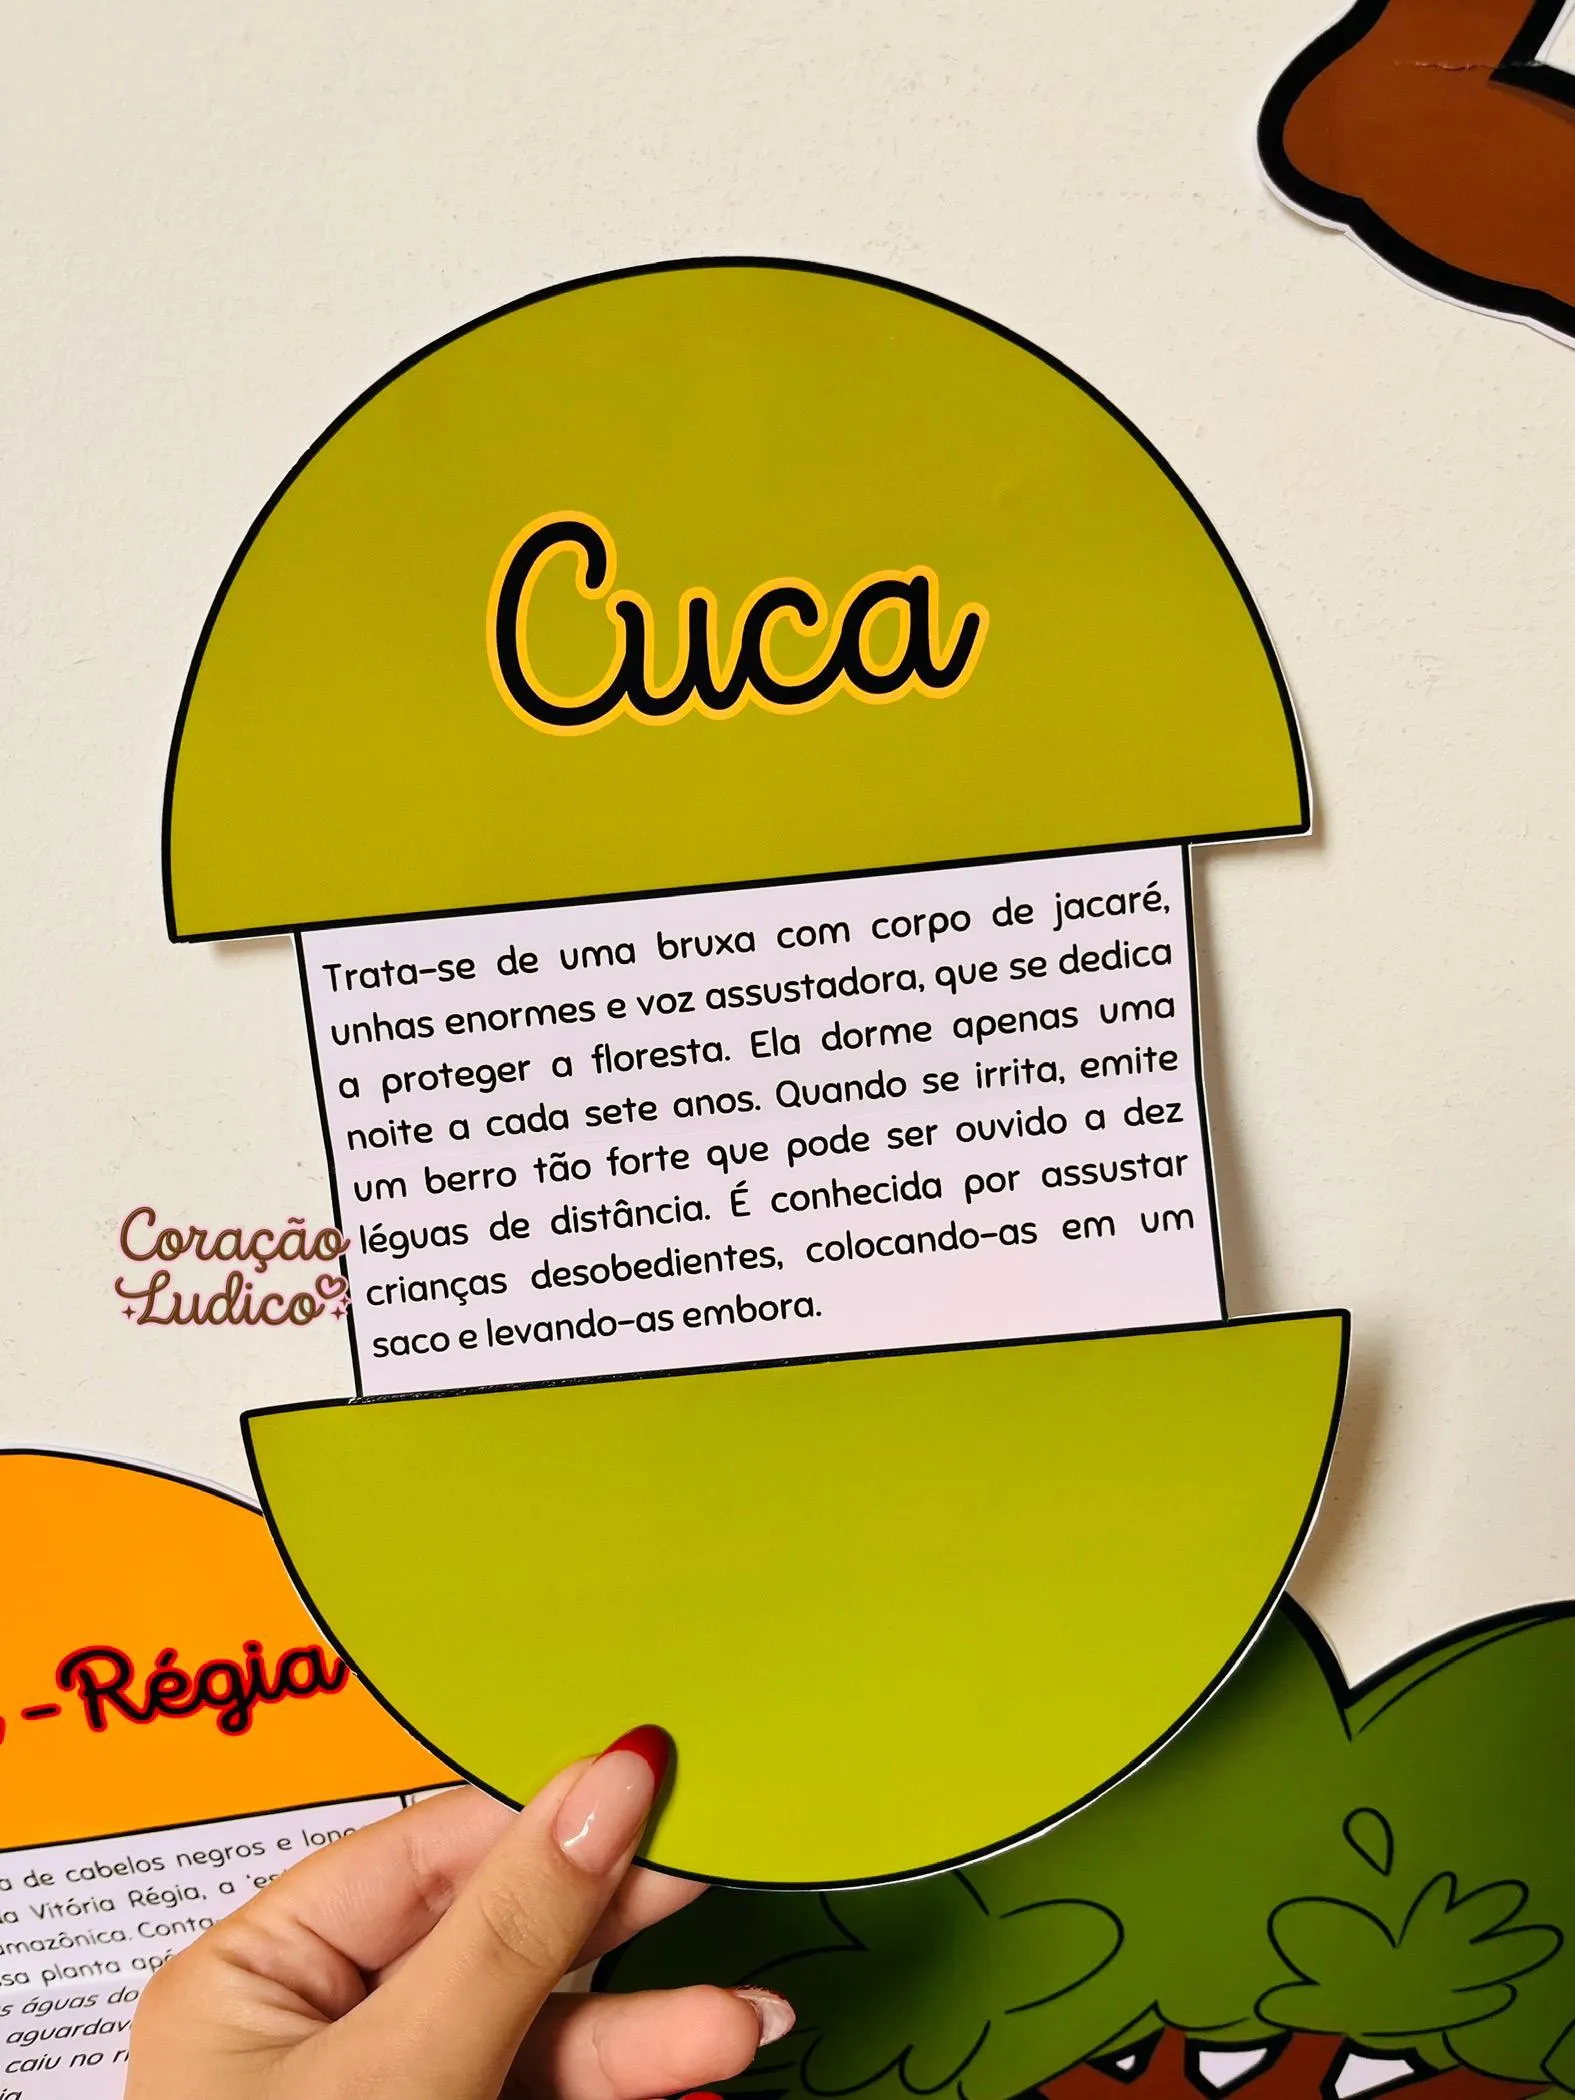 Cuca
Trata-se de uma bruxa com corpo de jacaré,
unhas enormes e voz assustadora, que se dedica
a proteger a floresta. Ela dorme apenas uma
noite a cada sete anos. Quando se irrita, emite
um berro tão forte que pode ser ouvido a dez
léguas de distância. É conhecida por assustar
crianças desobedientes, colocando-as em um
saco e levando-as embora.
Coração
Ludico
-Régia
de cabelos negros e
Vitória Régia, a
planta
águas do
caiu no